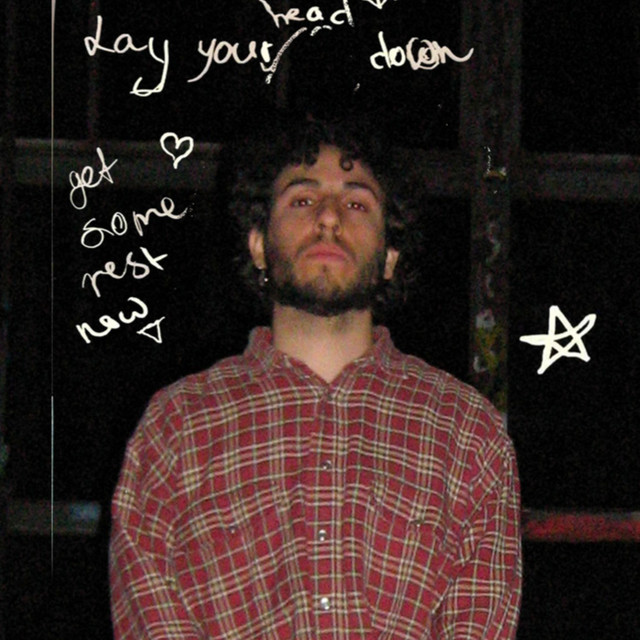 Lay your head down
get
some
rest
now